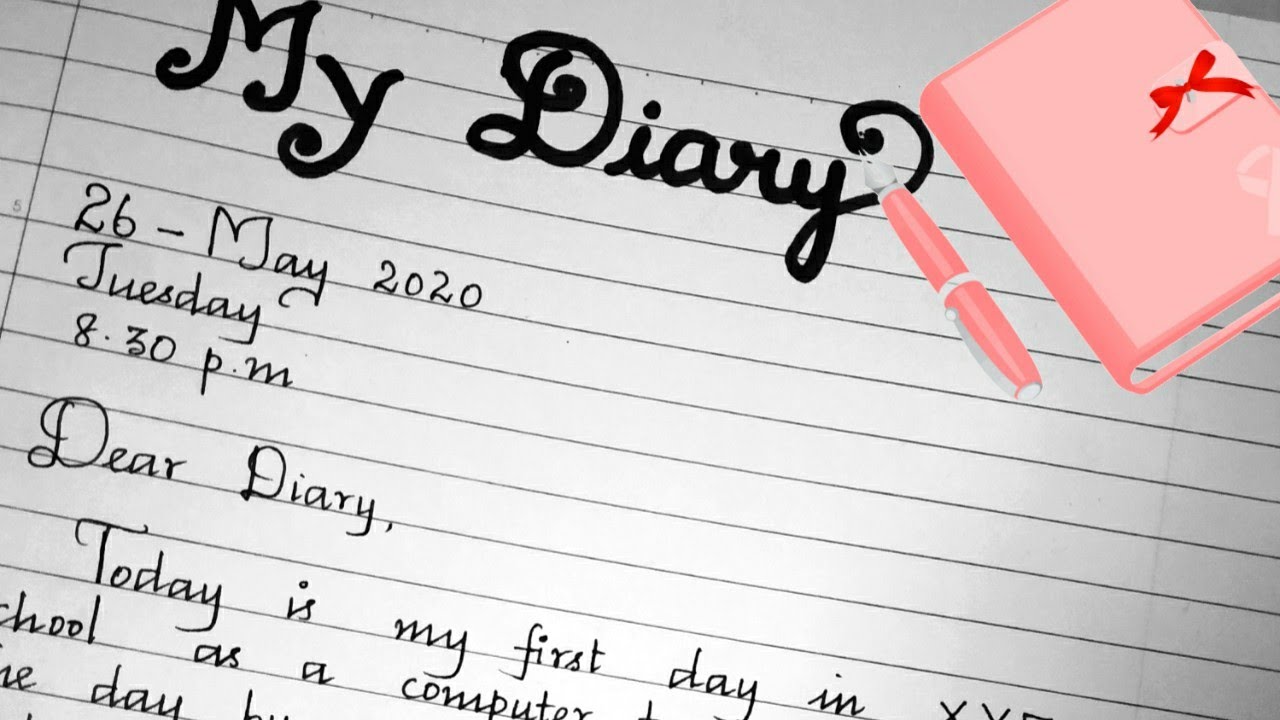 My Diary
5
26 - May 2020
Tuesday
8.30 p.m
Dear Diary,
Today is my first day in
school as a computer
day